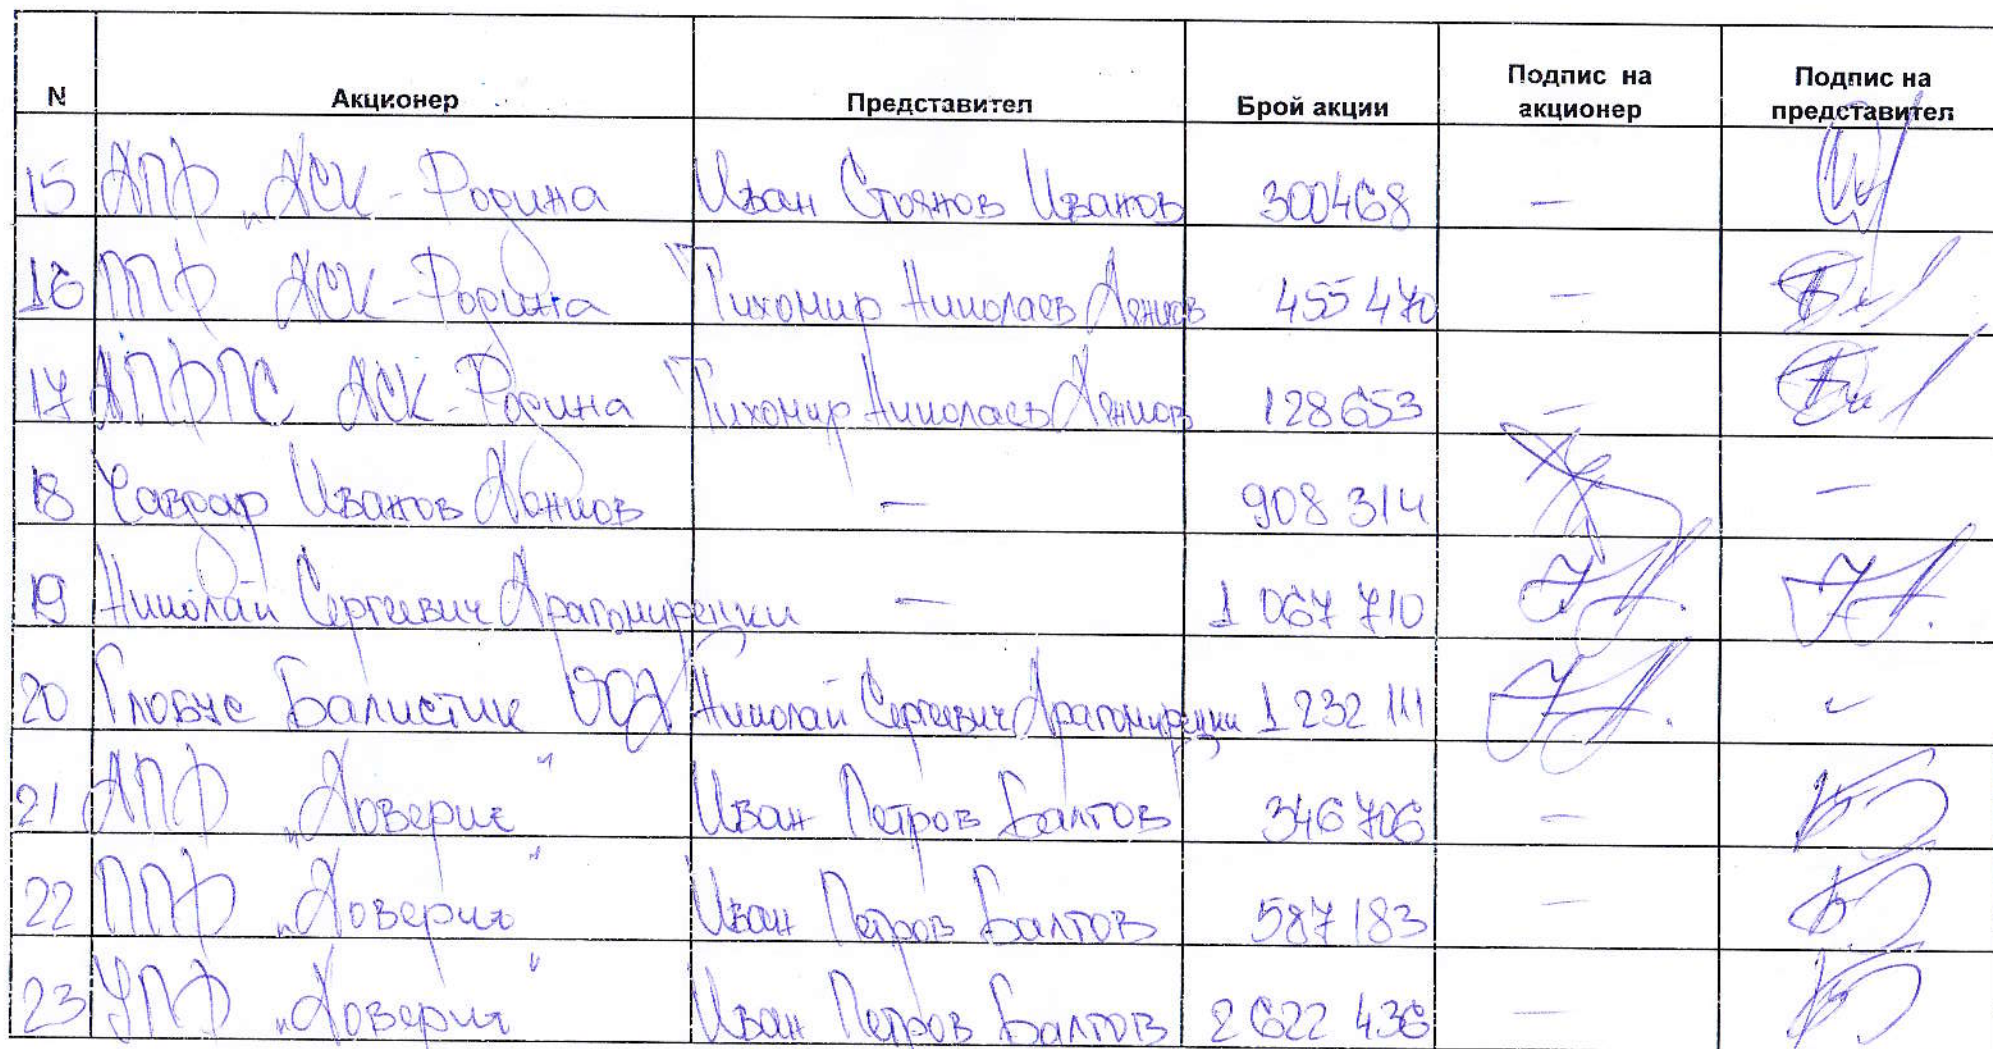 N Акционер Представител Брой акции Подпис на акционер Подпис на представител
15 ДПФ „ДСК - Родина Иван Стоянов Иванов 300468 —
16 ППФ ДСК - Родина Тихомир Николаев 455 470 —
17 ДПФПС ДСК - Родина Тихомир Николаев 128 653 —
18 Чавдар Иванов — 908 314 —
19 Николай Сергеевич Драгомирецки — 1 067 710
20 Глобус Балистик ООД Николай Сергеевич Драгомирецки 1 232 111
21 ДПФ „Доверие“ Иван Петров Балтов 346 706 —
22 ППФ „Доверие“ Иван Петров Балтов 587 183 —
23 УПФ „Доверие“ Иван Петров Балтов 2 622 436 —